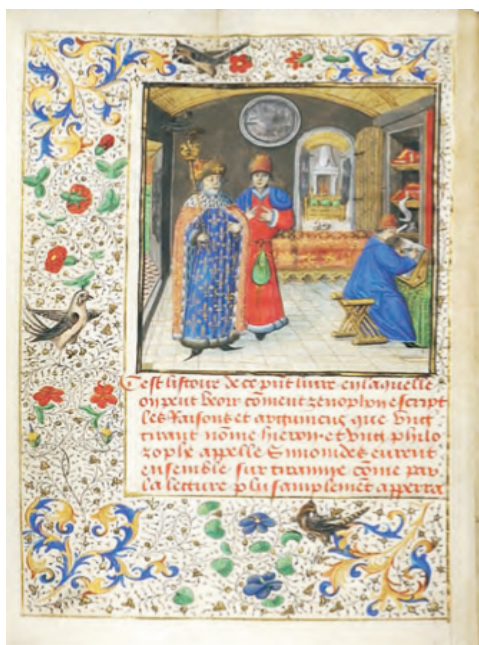 C'est listoire de ce pñt livre en laquelle
on peut veoir cõment zenophon escript
les Raisons et argumens que ung
tirant nõme hieron et ung philo
zophe appelle Simonides eurent
ensemble sur tirannie cõme par
la lecture plus amplement apperra